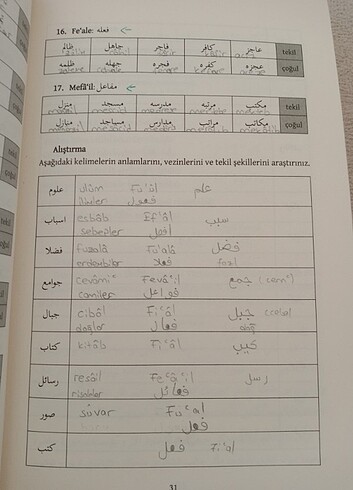 16. Fe'ale: فعله ←
ظالم جاهل فاجر كافر عاجز tekil
ظلمه جهله فجره كفره عجزه çoğul
17. Mefâ'il: مفاعل ←
منزل مسجد مدرسه مرتبه مكتب tekil
منازل مساجد مدارس مراتب مكاتب çoğul
Alıştırma
Aşağıdaki kelimelerin anlamlarını, vezinlerini ve tekil şekillerini araştırınız.
علوم ulûm Fu'ûl علم
ilimler فعول
اسباب esbâb Ef'âl سبب
sebepler
فضلا fuzalâ Fu'alâ فضل
فعلا fazl
جوامع cevâmi' Fevâ'il جمع (cem')
camiler فواعل
جبال cibâl Fi'âl جبل (cebel)
dağlar فعال dağ
كتاب kitâb Fi'âl
رسائل resâil Fe'â'il رسل
risaleler فعائل
صور suver Fu'al
فعل
كتب فعل
31